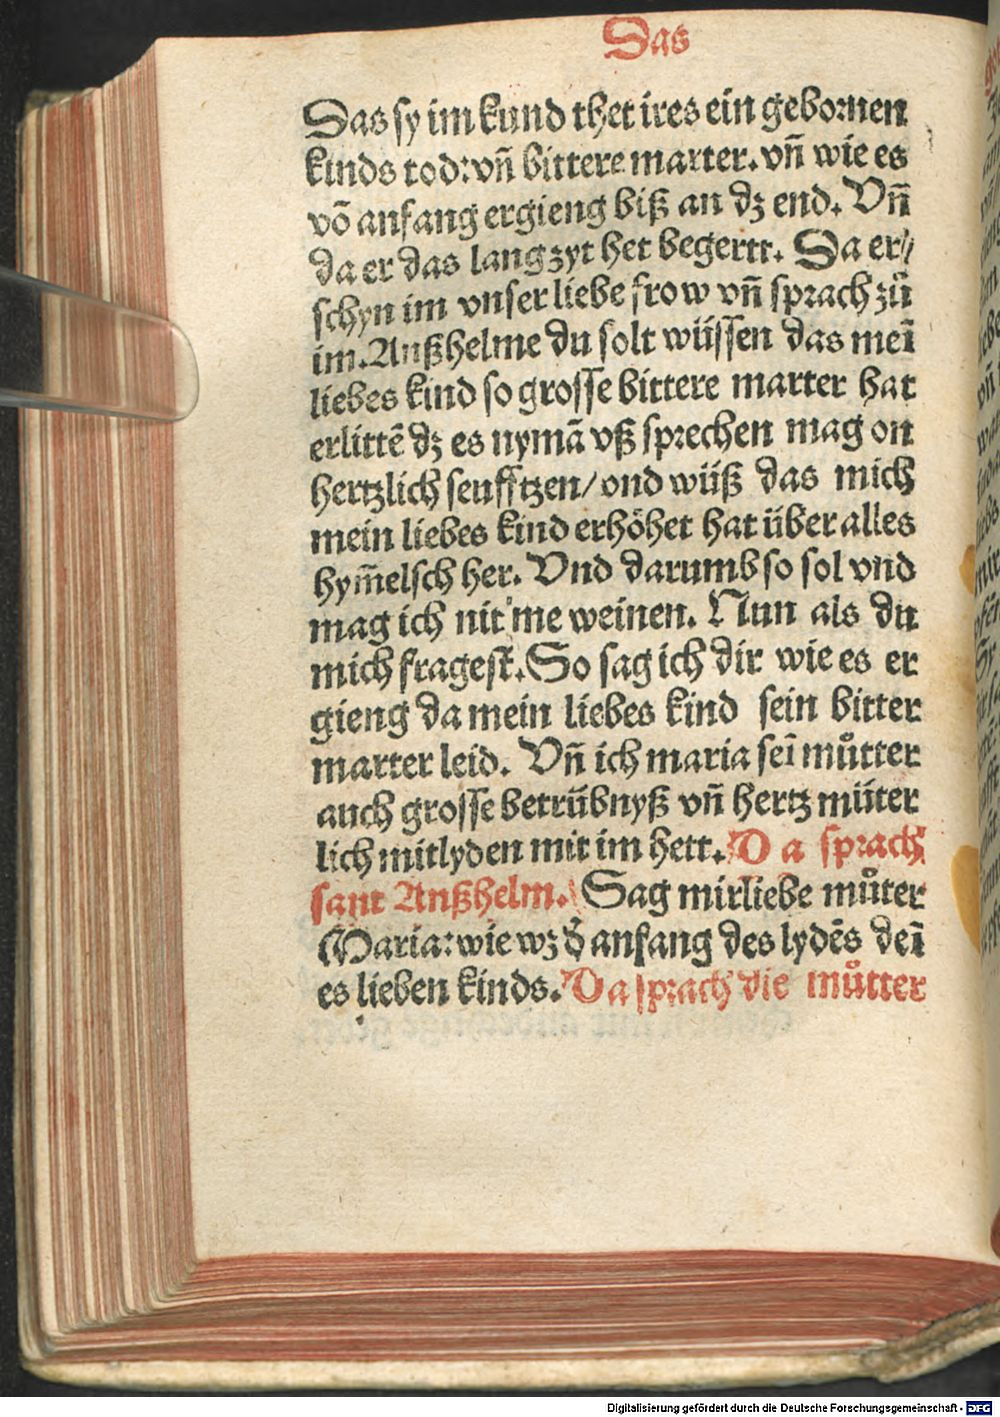 Das
Das sy im kund thet ires ein gebornen
kinds tod: vñ bittere marter. vñ wie es
võ anfang ergieng biß an dz end. Vñ
da er das lang zyt het begertt. Da er⸗
schyn im vnser liebe frow vñ sprach zů
im. Anßhelme du solt wüssen das meī
liebes kind so grosse bittere marter hat
erlittē dz es nymā vß sprechen mag on
hertzlich seufftzen/ ond wüß das mich
mein liebes kind erhöhet hat über alles
hym̄elsch her. Vnd darumb so sol vnd
mag ich nit me weinen. Nun als du
mich fragest. So sag ich dir wie es er
gieng da mein liebes kind sein bitter
marter leid. Vñ ich maria seī můtter
auch grosse betrübnyß vñ hertz müter
lich mitlyden mit im hett. Da sprach
sant Anßhelm. Sag mir liebe můter
Maria: wie wz d̕ anfang des lydēs deī
es lieben kinds. Da sprach die můtter
Digitalisierung gefördert durch die Deutsche Forschungsgemeinschaft - DFG